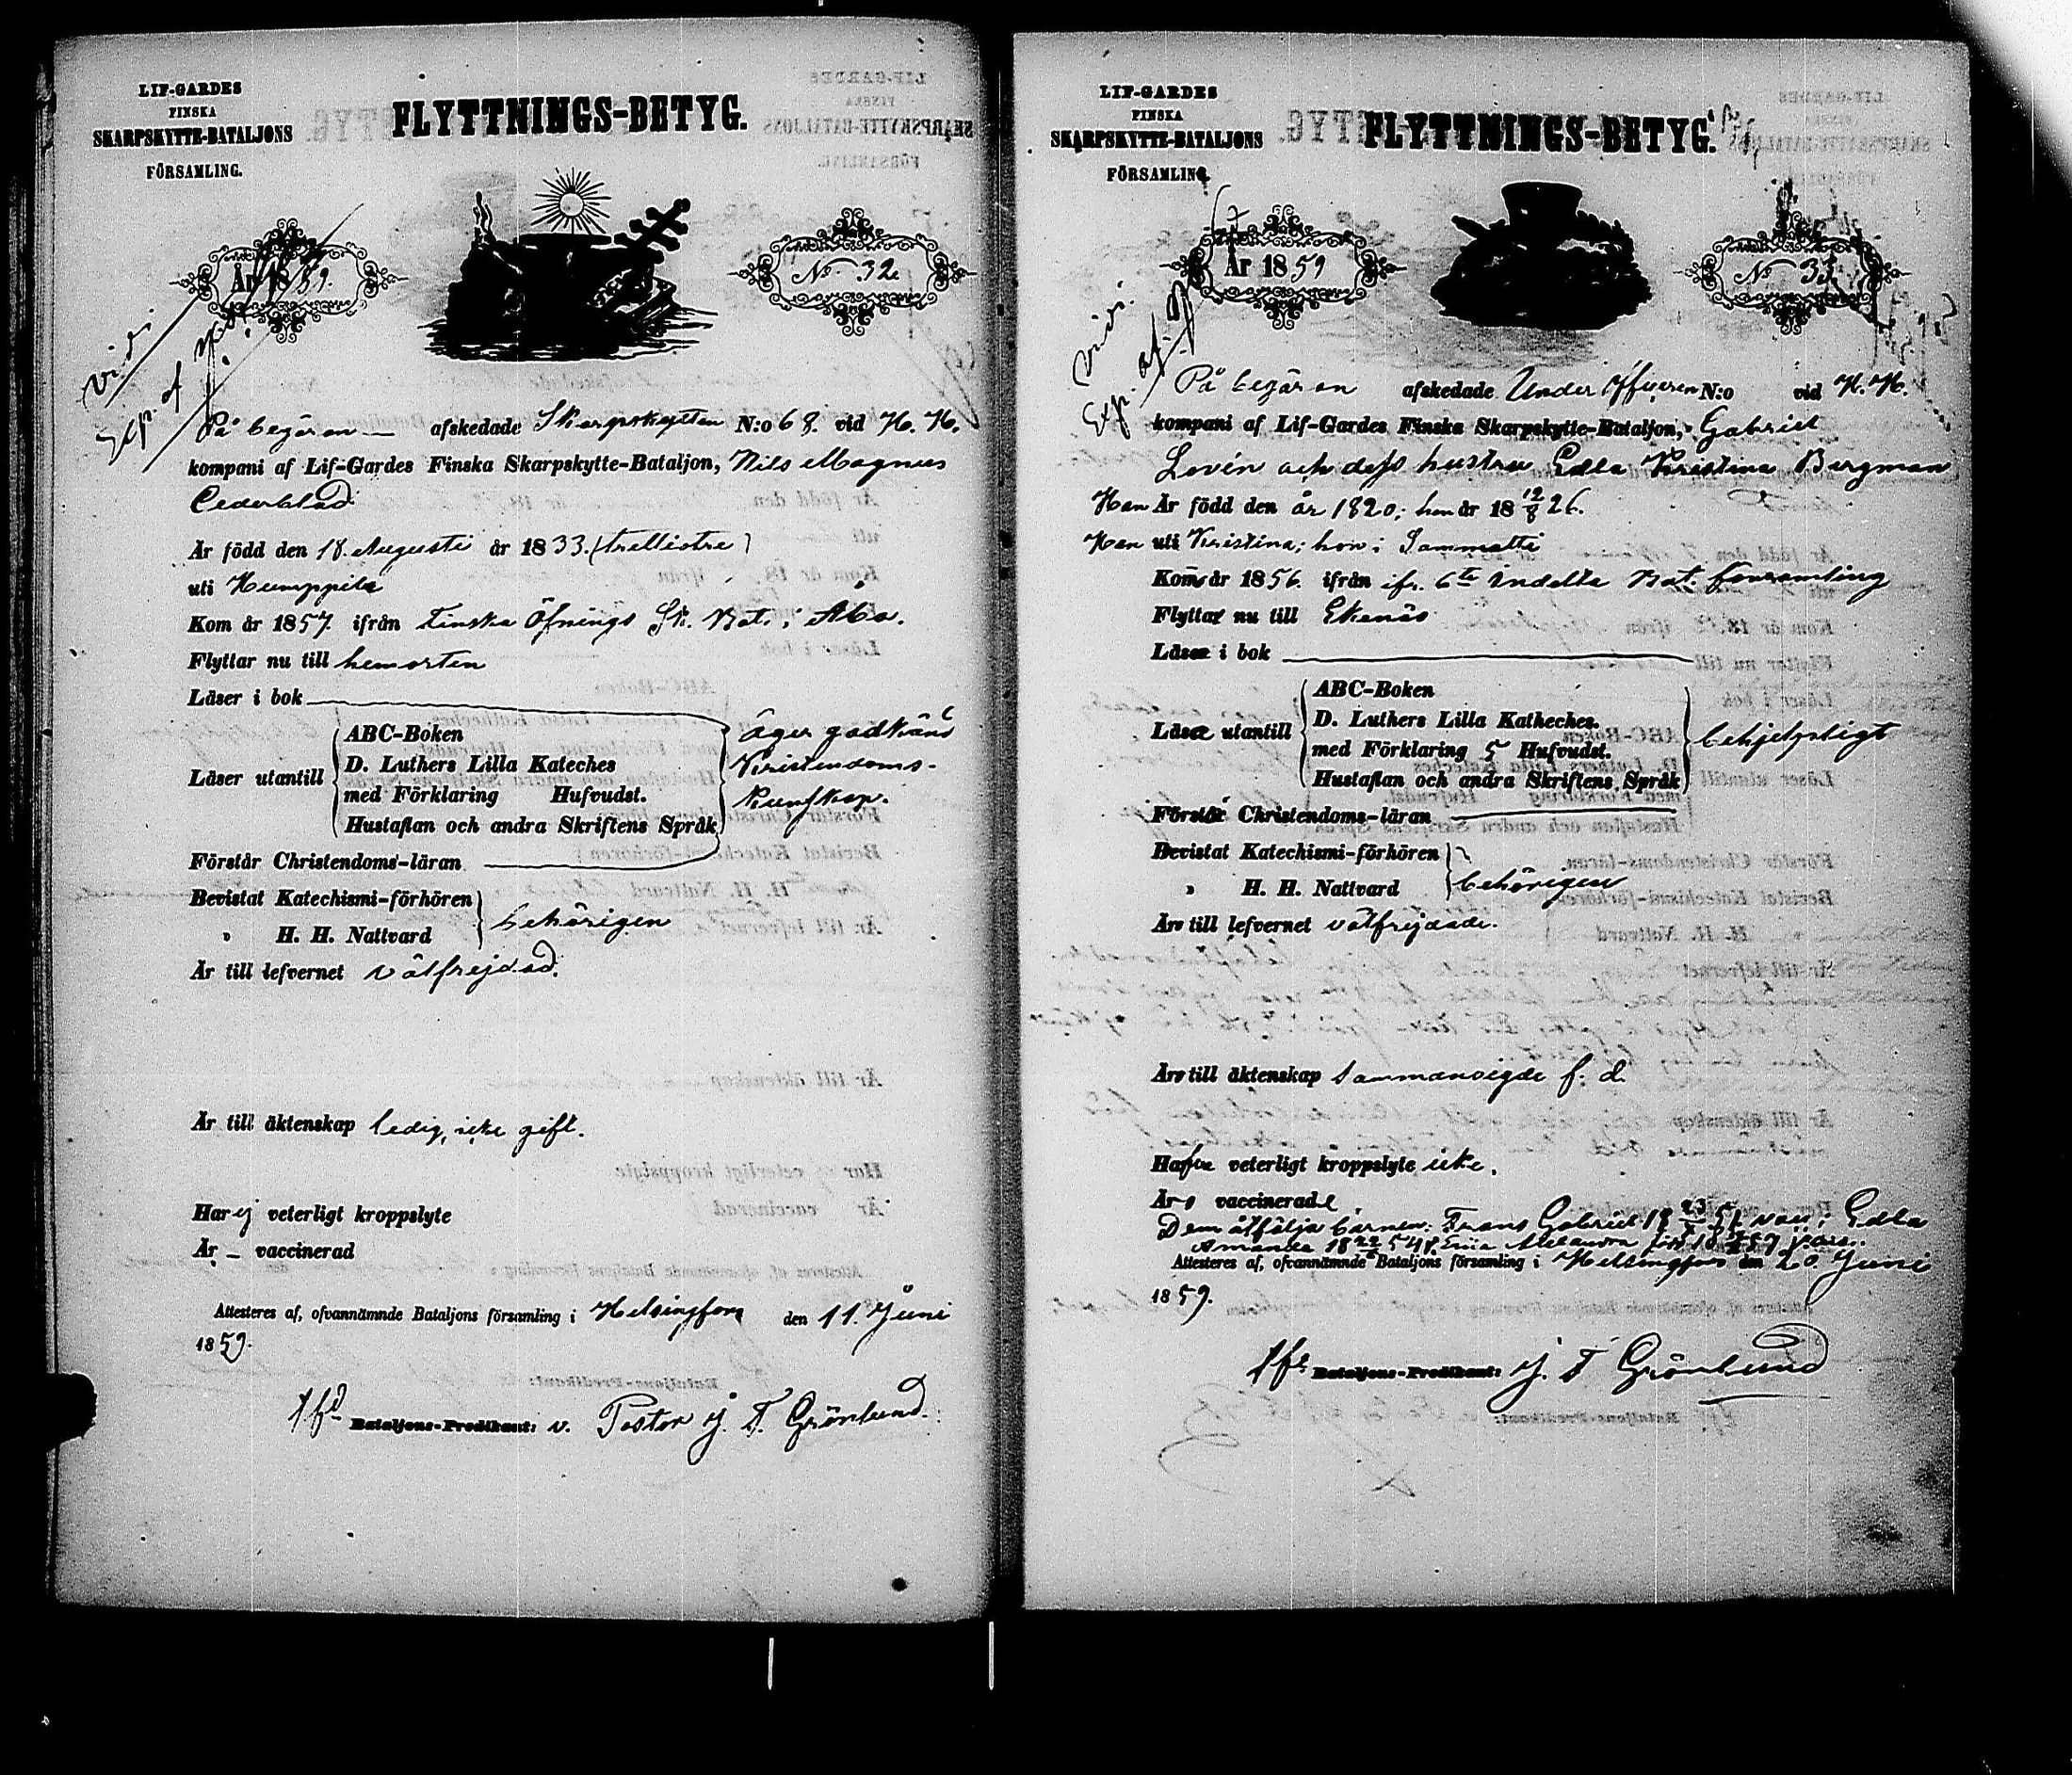 LIF-GARDES
FINSKA
SKARPSKYTTE-BATALJONS
FÖRSAMLING.
FLYTTNINGS-BETYG.
År 1859.
No 32
Vidi.
Exp. af
På begäran afskedade Skarpskytten N:o 68. vid H. H.
kompani af Lif-Gardes Finska Skarpskytte-Bataljon, Nils Magnus
Cederblad
Är född den 18. Augusti år 1833. (trettiotre)
uti Humppila
Kom år 1857. ifrån Finska Öfnings Sk. Bat. i Åbo.
Flyttar nu till hemorten
Läser i bok
Läser utantill
ABC-Boken
D. Luthers Lilla Kateches
med Förklaring Hufvudst.
Hustaflan och andra Skriftens Språk
äger godkänd
Kristendoms-
kunskap.
Förstår Christendoms-läran
Bevistat Katechismi-förhören
" H. H. Nattvard
behörigen
Är till lefvernet välfrejdad.
Är till äktenskap ledig, icke gift.
Har ej veterligt kroppslyte
Är – vaccinerad
Attesteres af, ofvannämnde Bataljons församling i Helsingfors den 11. Juni
1859.
Bataljons-Predikant: v. Pastor J. F. Grönlund.
LIF-GARDES
FINSKA
SKARPSKYTTE-BATALJONS
FÖRSAMLING.
FLYTTNINGS-BETYG.
År 1859
No 33
Vidi.
Exp. af
På begäran afskedade Under Officeren N:o vid H. H.
kompani af Lif-Gardes Finska Skarpskytte-Bataljon, Gabriel
Lovén och dess hustru Edla Kristina Bergman
Han Är född den år 1820; hon år 18 12/8 26.
Han uti Kristina; hon i Sammatti
Kom år 1856. ifrån 6te Indelta Bat. församling
Flytta nu till Ekenäs
Läsa i bok
Läsa utantill
ABC-Boken
D. Luthers Lilla Katheches.
med Förklaring 5 Hufvudst.
Hustaflan och andra Skriftens Språk
behjelpligt
Förstå Christendoms-läran
Bevistat Katechismi-förhören
" H. H. Nattvard
behörigen
Äro till lefvernet välfrejdade.
Äro till äktenskap sammanvigde
Hafva veterligt kroppslyte icke.
Äro vaccinerade
Dem åtfölja barnen: Frans Gabriel Edla
Amanda
Attesteres af, ofvannämnde Bataljons församling i Helsingfors den 20 Juni
1859.
Bataljons-Predikant: J. F. Grönlund